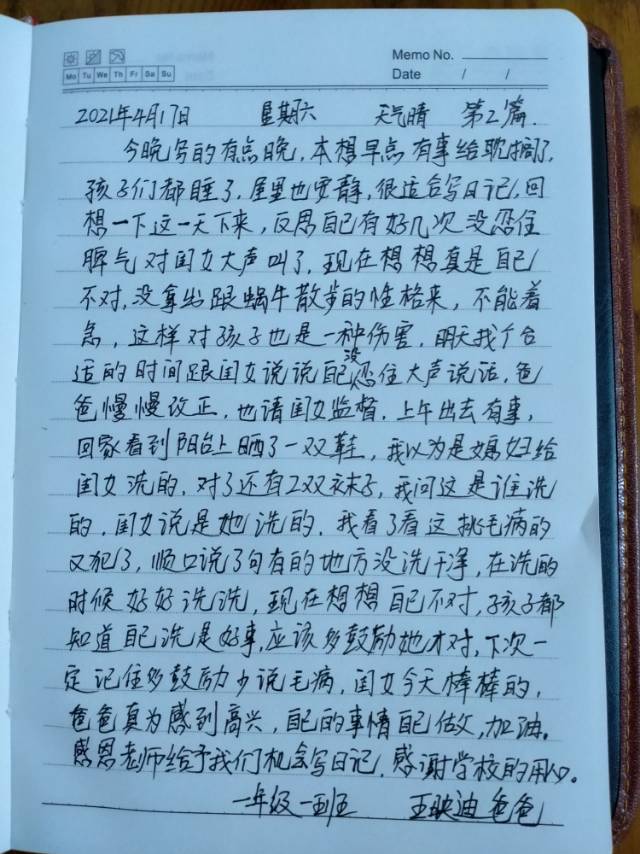 Memo No.
Mo Tu We Th Fr Sa Su
Date / /
2021年4月17日 星期六 天气晴 第2篇.
今晚写的有点晚,本想早点有事给耽搁了,
孩子们都睡了,屋里也安静,很适合写日记,回
想一下这一天下来,反思自己有好几次没忍住
脾气对闺女大声叫了,现在想想真是自己
不对,没拿出跟蜗牛散步的性格来,不能着
急,这样对孩子也是一种伤害,明天找个合
适的时间跟闺女说说自己没忍住大声说话,爸
爸慢慢改正,也请闺女监督.上午出去有事,
回家看到阳台上晒了一双鞋,我以为是媳妇给
闺女洗的,对了还有2双袜子,我问这是谁洗
的,闺女说是她洗的,我看了看这挑毛病的
又犯了,顺口说了句有的地方没洗干净,在洗的
时候好好洗洗,现在想想自己不对,孩子都
知道自己洗是好事,应该多鼓励她才对,下次一
定记住多鼓励少说毛病,闺女今天棒棒的,
爸爸真为感到高兴,自己的事情自己做,加油。
感恩老师给予我们机会写日记,感谢学校的用心。
一年级一班 王映迪爸爸